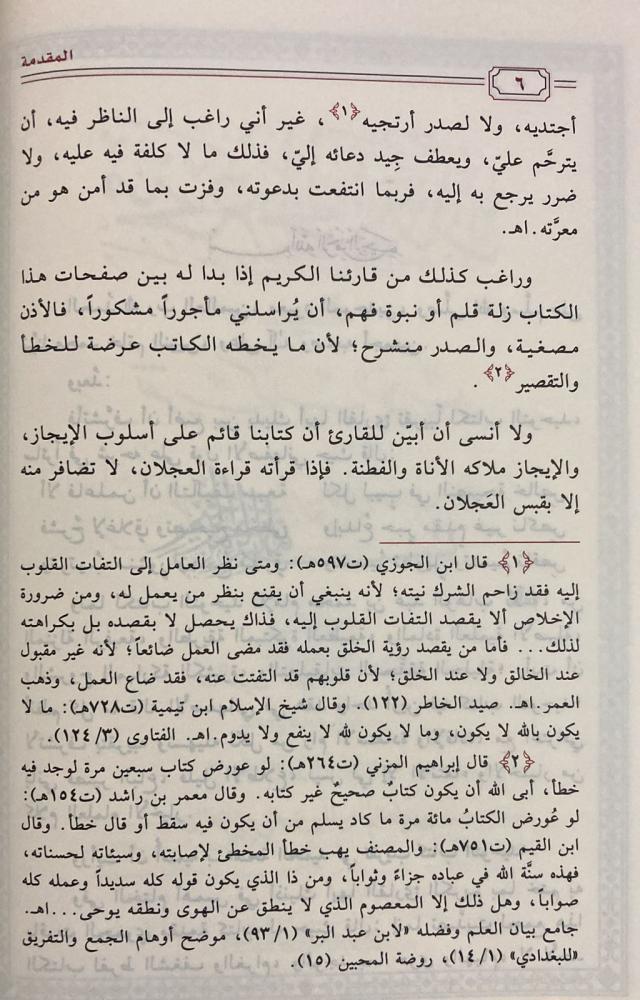 المقدمة
٦
أجتديه، ولا لصدر أرتجيه﴿١﴾، غير أني راغب إلى الناظر فيه، أن
يترحَّم عليّ، ويعطف جِيد دعائه إليّ، فذلك ما لا كلفة فيه عليه، ولا
ضرر يرجع به إليه، فربما انتفعت بدعوته، وفزت بما قد أمن هو من
معرَّته.اهـ.
وراغب كذلك من قارئنا الكريم إذا بدا له بين صفحات هذا
الكتاب زلة قلم أو نبوة فهم، أن يُراسلني مأجوراً مشكوراً، فالأذن
مصغية، والصدر منشرح؛ لأن ما يخطه الكاتب عرضة للخطأ
والتقصير﴿٢﴾.
ولا أنسى أن أبيّن للقارئ أن كتابنا قائم على أسلوب الإيجاز،
والإيجاز ملاكه الأناة والفطنة. فإذا قرأته قراءة العجلان، لا تضافر منه
إلا بقبس العَجلان.
﴿١﴾ قال ابن الجوزي (ت٥٩٧هـ): ومتى نظر العامل إلى التفات القلوب
إليه فقد زاحم الشرك نيته؛ لأنه ينبغي أن يقنع بنظر من يعمل له، ومن ضرورة
الإخلاص ألا يقصد التفات القلوب إليه، فذاك يحصل لا بقصده بل بكراهته
لذلك... فأما من يقصد رؤية الخلق بعمله فقد مضى العمل ضائعاً؛ لأنه غير مقبول
عند الخالق ولا عند الخلق؛ لأن قلوبهم قد التفتت عنه، فقد ضاع العمل، وذهب
العمر.اهـ. صيد الخاطر (١٢٢). وقال شيخ الإسلام ابن تيمية (ت٧٢٨هـ): ما لا
يكون بالله لا يكون، وما لا يكون لله لا ينفع ولا يدوم.اهـ. الفتاوى (٣/ ١٢٤).
﴿٢﴾ قال إبراهيم المزني (ت٢٦٤هـ): لو عورض كتاب سبعين مرة لوجد فيه
خطأ، أبى الله أن يكون كتابٌ صحيحٌ غير كتابه. وقال معمر بن راشد (ت١٥٤هـ):
لو عُورض الكتابُ مائة مرة ما كاد يسلم من أن يكون فيه سقط أو قال خطأ. وقال
ابن القيم (ت٧٥١هـ): والمصنف يهب خطأ المخطئ لإصابته، وسيئاته لحسناته،
فهذه سنَّة الله في عباده جزاءً وثواباً، ومن ذا الذي يكون قوله كله سديداً وعمله كله
صواباً، وهل ذلك إلا المعصوم الذي لا ينطق عن الهوى ونطقه يوحى...اهـ.
جامع بيان العلم وفضله «لابن عبد البر» (١/ ٩٣)، موضح أوهام الجمع والتفريق
«للبغدادي» (١/ ١٤)، روضة المحبين (١٥).